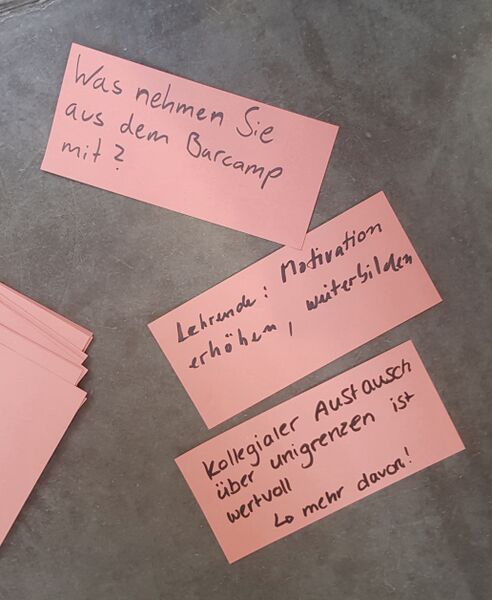 Was nehmen Sie
aus dem Barcamp
mit?
Lehrende: Motivation
erhöhen, weiterbilden
Kollegialer Austausch
über unigrenzen ist
wertvoll
↳ mehr davon!